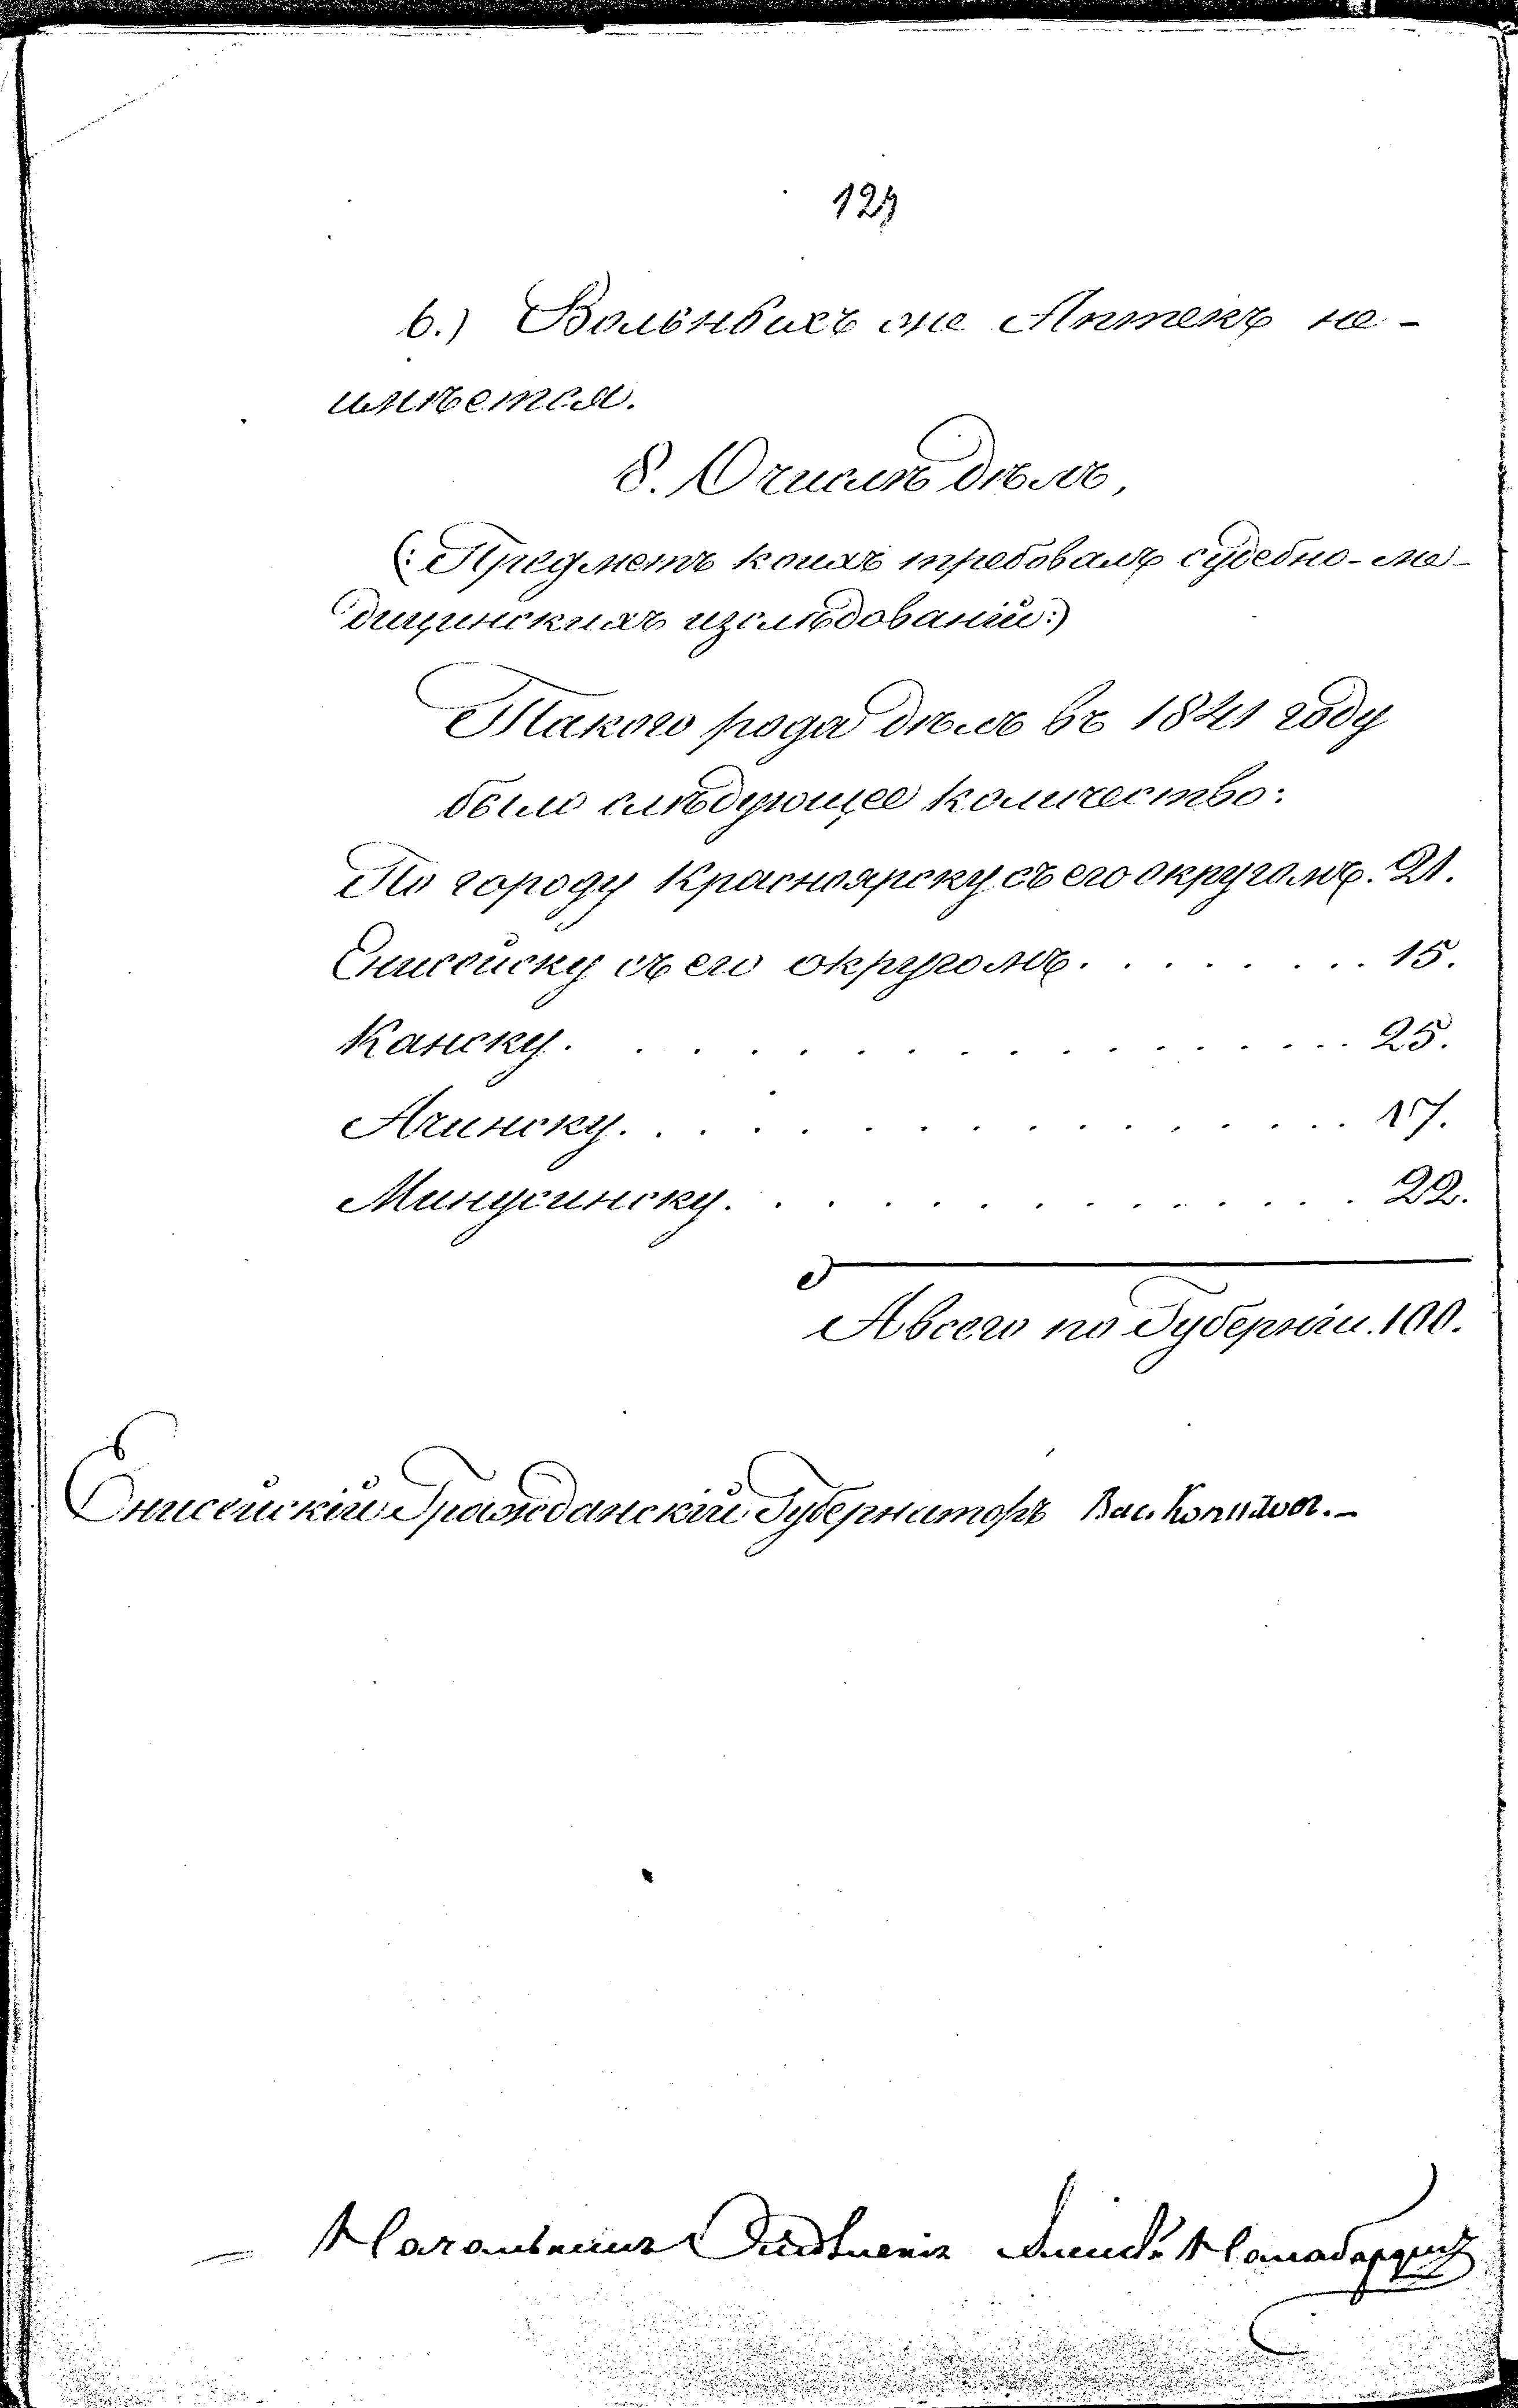 124
в.) Вольныхъ же Аптекъ не-
имѣется.
8. О числѣ дѣлъ,
(: Предметъ коихъ требовалъ судебно-ме-
дицинскихъ изслѣдованій:)
Такого рода дѣлъ въ 1841 году
было слѣдующее количество:
По городу Красноярску съ его округомъ. 21.
Енисейску съ его округомъ. . . . . . . . 15.
Канску. . . . . . . . . . . . . . . . 25.
Ачинску. . . . . . . . . . . . . . . 17.
Минусинску. . . . . . . . . . . . . 22.
А всего по Губерніи. 100.
Енисейскій Гражданскій Губернаторъ Вас. Копылов.
Начальникъ Отдѣленія